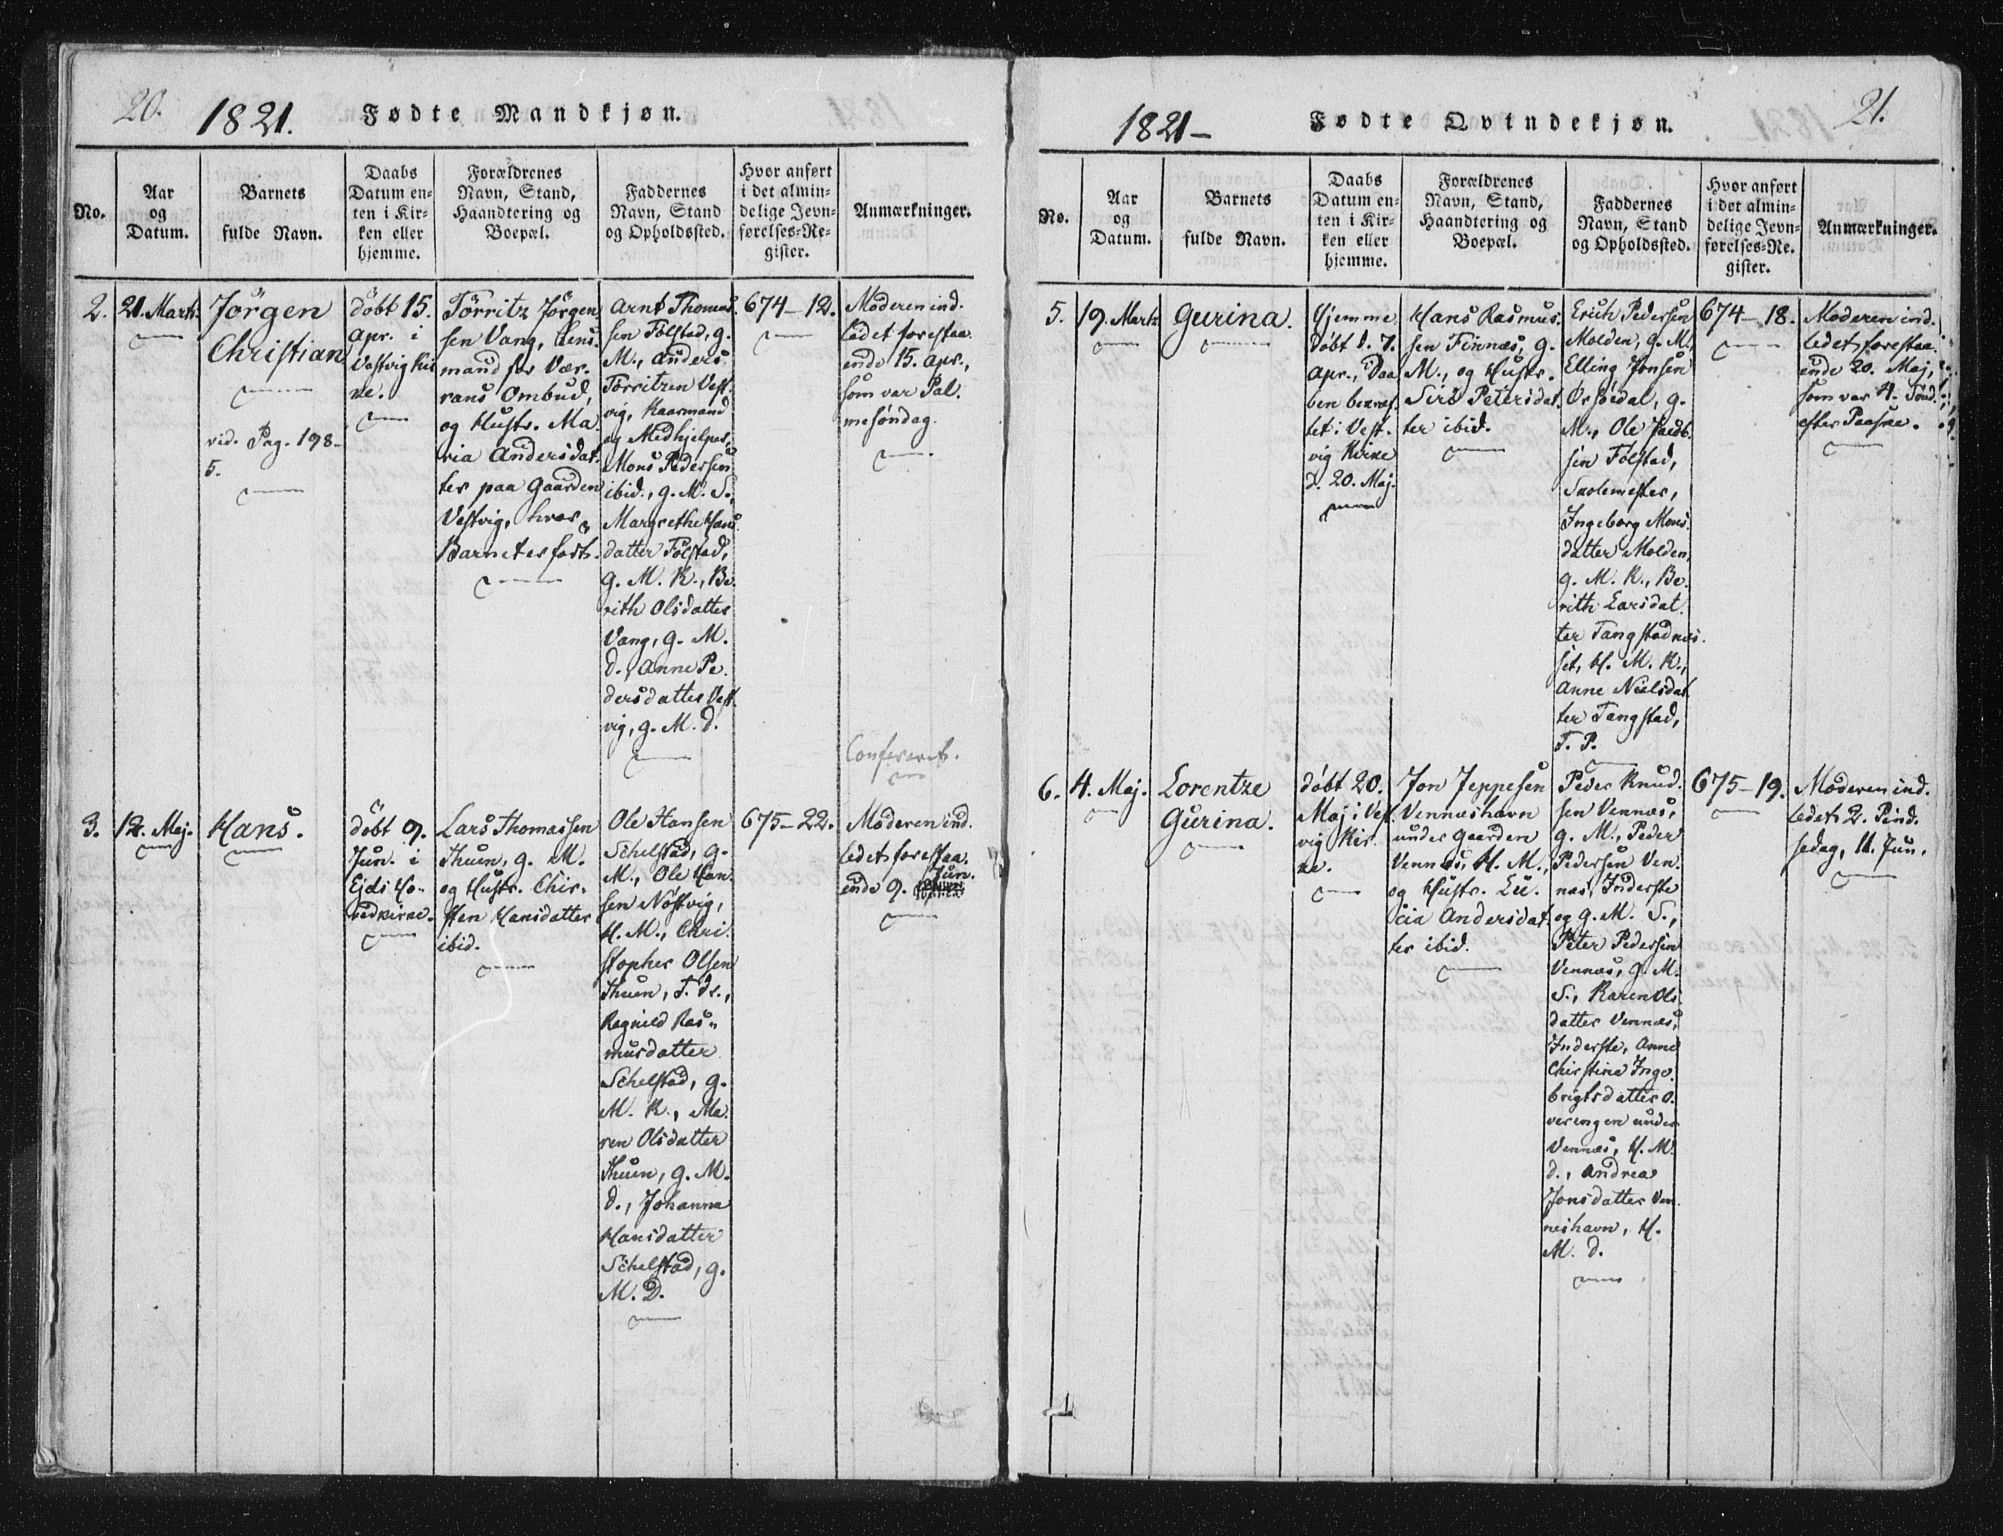 20.
1821.
Fødte Mandkjøn.
No.
Aar
og
Datum.
Barnets
fulde Navn.
Daabs
Datum en-
ten i Kir-
ken eller
hjemme.
Forældrenes
Navn, Stand,
Haandtering og
Boepæl.
Faddernes
Navn, Stand
og Opholdssted.
Hvor anført
i det almin-
delige Jevn-
førelses-Re-
gister.
Anmærkninger.
2.
21. Marts.
Jörgen
Christian
vid. Pag. 198-
5.
döbt 15.
Apr. i
Vestvig Kir
ke.
Törritz Jörgen
sen Vang, Lens
mand for Vær-
rans Ombud,
og Hustr. Ma
ria Andersdat-
ter paa Gaarden
Vestvig, hvor
Barnet es født.
Arnt Thomas
sen Fölstad, g.
M., Anders
Törritzen Vest-
vig, Kaarmand
og Medhjelper,
Mons Pedersen
ibid., g. M. S.,
Margrethe Hans
datter Fölstad,
g. M. K., Be
rith Olsdatter
Vang, g. M.
d., Anne Pe
dersdatter Vest
vig, g. M. d.
674-12.
Moderen ind.
ledet forestaa
ende 15. Apr.,
som var Pal
mesöndag.
Confereret.
3.
12. Maj.
Hans.
döbt 9.
Jun. i
Ejds Ho-
vedkirke.
Lars Thomassen
Thuen, g. M.
og Hustr. Chir-
sten Hansdatter
ibid.
Ole Hansen
Schelstad, g.
M., Ole Han
sen Nöstvig,
H. M., Chri
stopher Olsen
Thuen, T. Dr.,
Ragnild Ras-
musdatter
Schelstad, g.
M. K., Ma
ren Olsdatter
Thuen, g. M.
d., Johanna
Hansdatter
Schelstad, g.
M. D.
675-22.
Moderen ind.
ledet forestaa
Jun.
ende 9.
21.
1821-
Fødte Qvindekjøn.
No.
Aar
og
Datum.
Barnets
fulde Navn.
Daabs
Datum en-
ten i Kir-
ken eller
hjemme.
Forældrenes
Navn, Stand,
Haandtering og
Boepæl.
Faddernes
Navn, Stand
og Opholdssted.
Hvor anført
i det almin-
delige Jevn-
førelses-Re-
gister.
Anmærkninger.
5.
19. Marts
Gurina.
Hjemme
döbt d. 7.
Apr., Daa
ben bekræf
tet i Vest
vig Kirke
d. 20. Maj.
Hans Rasmus
sen Finnæs, g.
M., og Hustr.
Siri Petersdat
ter ibid.
Erich Pedersen
Molden, g. M.
Elling Jonsen
Orsöidal, g.
M., Ole Jacob
sen Fölstad,
Skolemester,
Ingeborg Mons
datter Molden,
g. M. K., Be
rith Larsdat
ter Tangstadnes
set, H. M. K.,
Anne Nielsdat
ter Tangstad,
T. P.
674-18.
Moderen ind.
ledet forestaa
ende 20. Maj,
som var 4. Sönd.
efter Paaske.
6.
4. Maj.
Lorentze
Gurina.
döbt 20.
Maj i Vest
vig Kir
ke.
Jon Jeppesen
Vennæshavn
under Gaarden
Vennæs, H. M.,
og Hustr. Lu
cia Andersdat
ter ibid.
Peder Knud
sen Vennæs,
g. M., Peder
Pedersen Ven
næs, Inderste
og g. M. S.,
Peter Pedersen
Vennæs, g. M.
S., Karen Ols
datter Vennæs,
Inderste, Anne
Chirstina Inge
brigtsdatter O
veringen under
Vennæs, H. M.
d., Andrea
Jonsdatter Ven
neshavn, H.
M. d.
675-19.
Moderen ind.
ledet 2. Pind
sedag, 11. Jun.